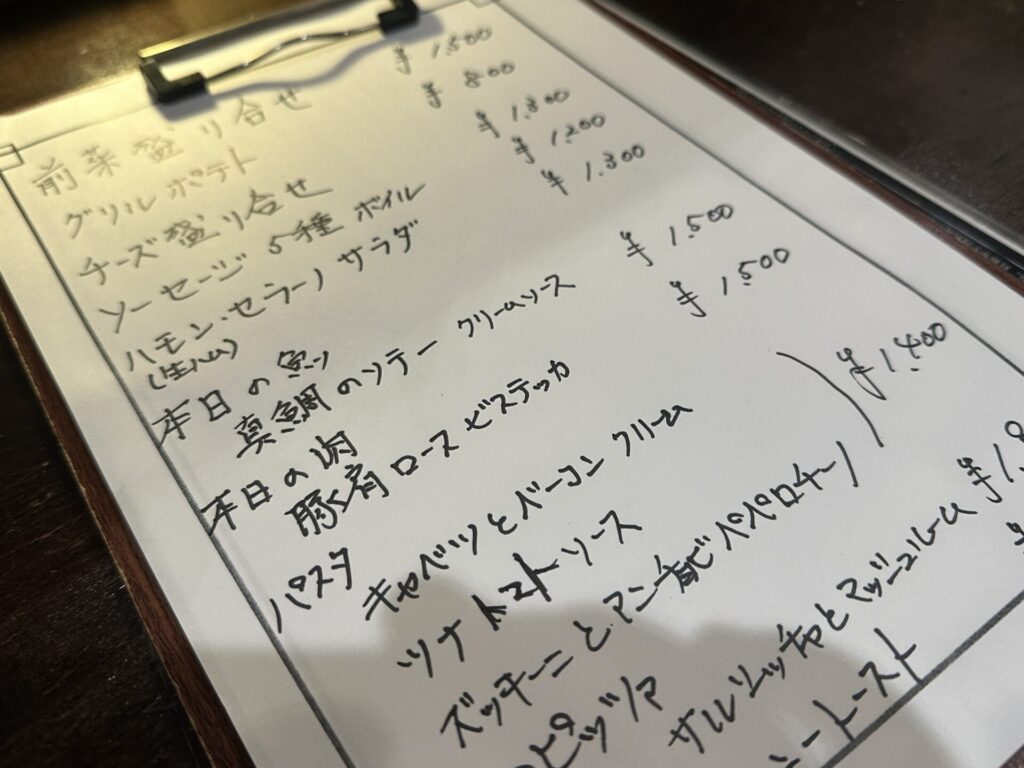 前菜盛り合せ ¥1.500
グリルポテト ¥800
チーズ盛り合せ ¥1.800
ソーセージ5種ボイル ¥1.200
ハモン・セラーノサラダ ¥1.300
(生ハム)
本日の魚
真鯛のソテー クリームソース ¥1.500
本日の肉
豚肩ロースビステッカ ¥1.500
パスタ
キャベツとベーコン クリーム
ツナトマトソース ¥1.400
ズッキーニとアンチョビペペロンチーノ
ピッツァ
サルシッチャとマッシュルーム
トースト